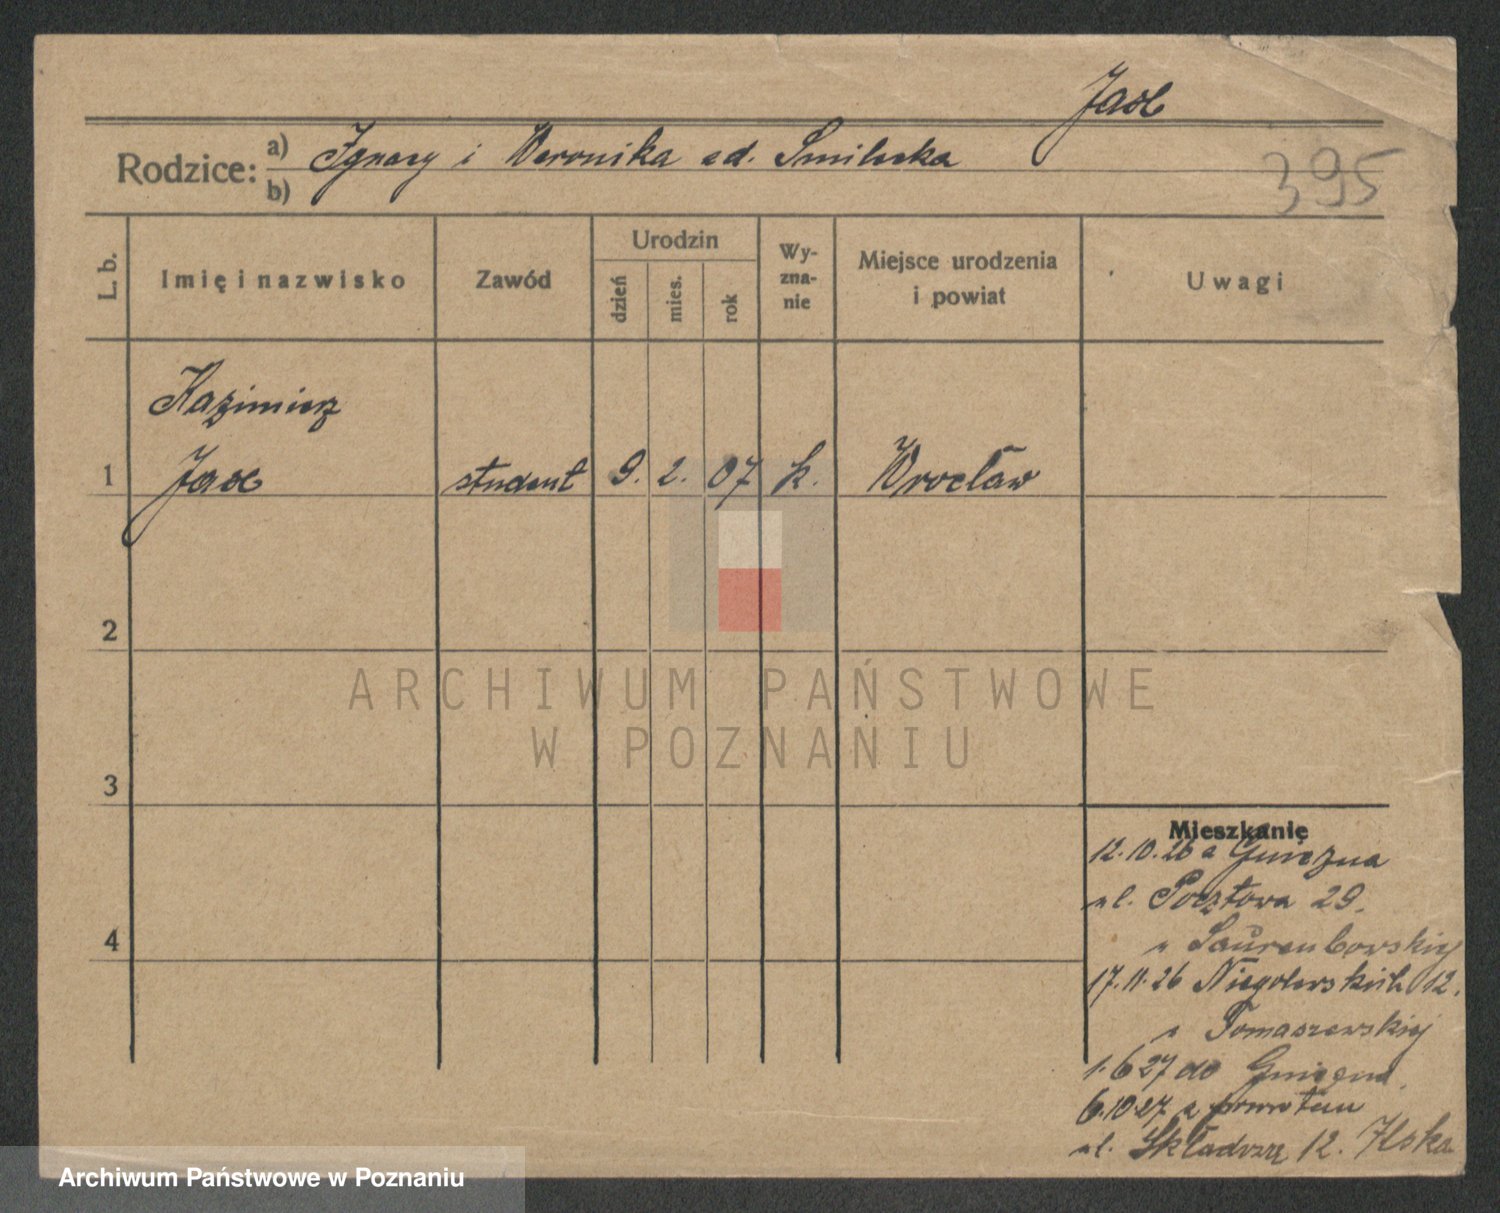 Jax
Rodzice: a) Ignacy i Weronika zd. Smilecka
b)
395
L. b.
Imię i nazwisko
Zawód
Urodzin
dzień
mies.
rok
Wy-
zna-
nie
Miejsce urodzenia
i powiat
Uwagi
Kazimierz
1 Jax student 9. 2. 07 k. Wrocław
2
3
4
Mieszkanie
12.10.26 z Gniezna
ul. Pocztowa 29.
17.11.26 Niegolewskich 12.
u Tomaszewskiej
1.6 27 do Gniezna
6.10 27 z powrotem
ul. 12.
ARCHIWUM PAŃSTWOWE
W POZNANIU
Archiwum Państwowe w Poznaniu